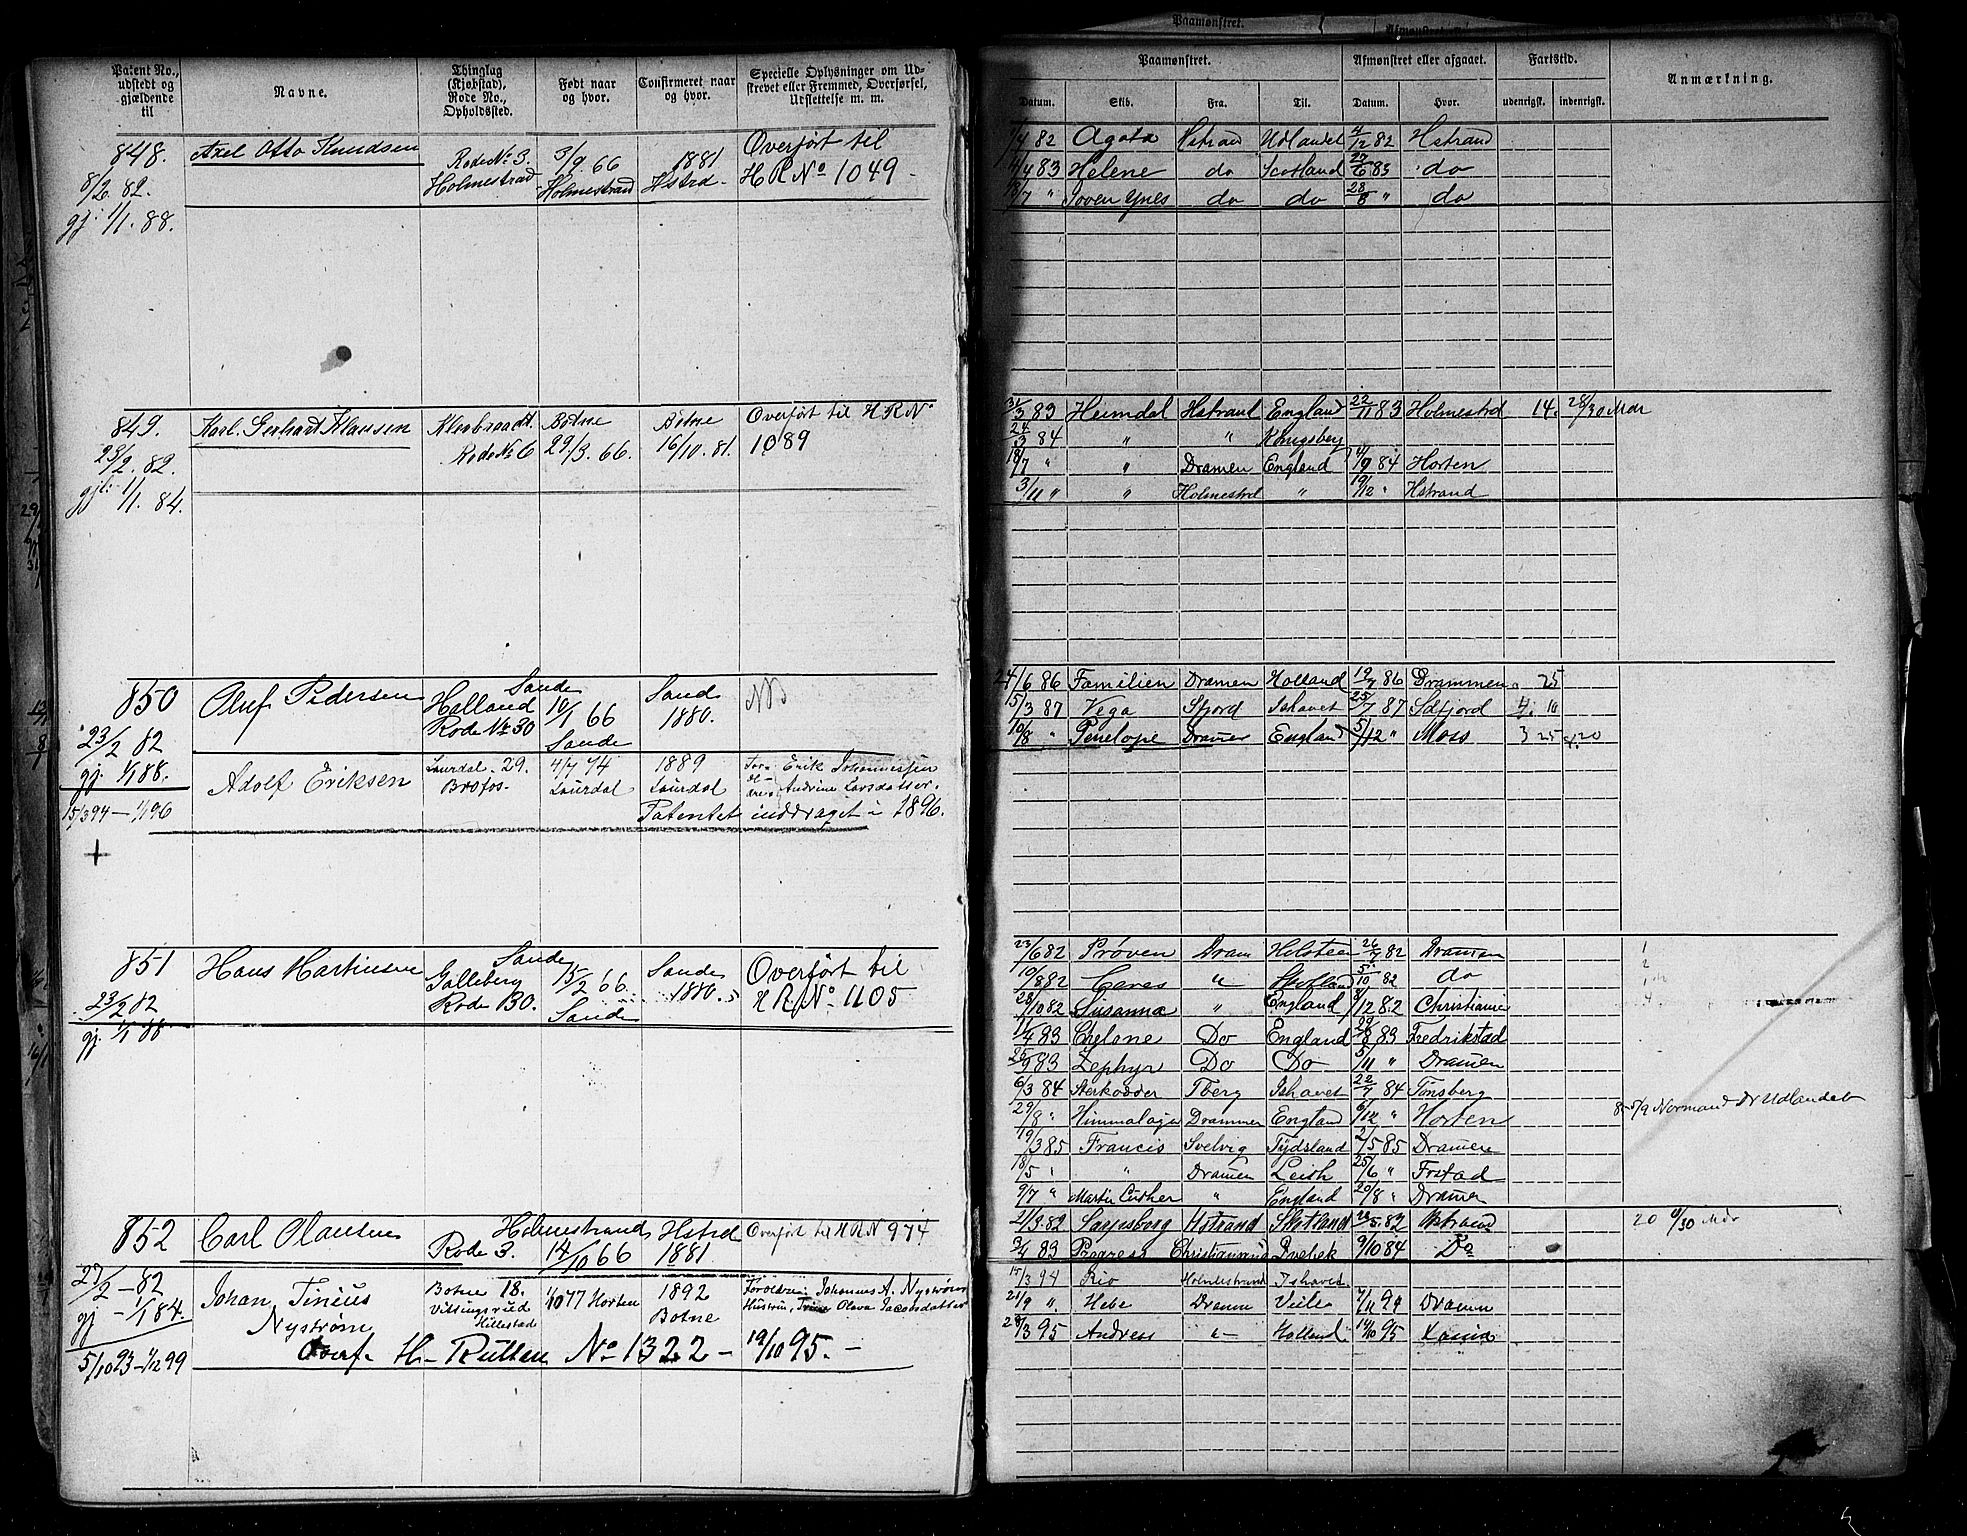 Patent No., udstedt og gjældende til
Navne.
Thinglag (Kjøbstad), Rode No., Opholdssted.
Født naar og hvor.
Confirmeret naar og hvor.
Specielle Oplysninger om Udstrevet eller Fremmed, Overførsel, Urslettelse m. m.
848. Axel Otto Knudsen Rode No 3. 3/9 66 1881 Overført til
8/2 82. Holmestrad Holmestrand Hstrd. H R No 1049
gj. 1/1. 88.
849. Karl. Gerhart Klausen Rode No 6 Botne 29/3. 66. Botne 16/10. 81. Overført til H R No 1089
23/2. 82.
gjl: 1/1. 84.
850 Oluf Pedersen Sande Holland Rode No 30 10/1 66 Sande Sand 1880. NB
23/2 82
gj. 1/1 88.
Adolf Eriksen 29. 4/7 74 1889 Erik Johannessen
15/3 94 — 1/1 96 Patentet inddraget i 1896.
+
851 Hans Martinsen Sande Galleberg Rode 30. 15/2 66. Sande Sande 1880. Overført til H R No 1105
23/2 82
gj. 1/1 88
852 Carl Olausen Holmestrand Rode 3. 14/10 66 Hstrd 1881 Overført til H R N 974
27/2 — 82
gj — 1/1 84.
Johan Tinius Nystrøm Botne 18. Hillestad Horten 1892 Botne Forældre: Johannes A. Nystrøm
Hustru, Olava Jacobsdatter
Overf. H. Rullen No 1322 — 19/10 95. —
5/10 93 — 1/12 99
Paamønstret.
Paamønstret.
Afmønstret eller afgaaet.
Fartstid.
Anmærkning.
Datum. Skib. Fra. Til. Datum. Hvor. udenrigst. indenrigst.
82 Agata Hstrand Udlandet 82 Hstrand
83 Helene do Scotland 27/6 83 do
18/7 " do do 28/8 " do
31/3 83 Heimdal Hstrand England 22/11 83 Holmestrd 14.
24/3 84 " " Königsberg
18/7 " " Dramen England 84 Horten
3/11 " " Holmestrd " 19/12 " Hstrand
24/6 86 Familien Dramen Holland 86 Drammen 25
15/3 87 Vega Sfjord Ishavet 25/7 87 Sdfjord 4. 10
10/8 " Penelope Dramen England 5/12 " Moss 3 25
23/6 82 Prøven Dram Holsteen 26/7 82 Dramen
10/8 82 Ceres " 5/10 82 do
28/10 82 Susanna " England 82 Christiania
83 Chelone Do England 83 Fredrikstad
83 Zephyr Do Do 5/11 " Dramen
6/3 84 Sterkodder Tberg Ishavet 22/7 84 Tønsberg
29/8 " Himmalaya Drammen England 6/12 " Horten 85 5/9 Normand Dr Udlandet
19/3 85 Francis Svelvig Tydsland 2/5 85 Dramen
18/5 " " Dramen Leith 25/6 " Frstad
9/7 " Martin Luther " England 20/8 " Dramen
21/3 82 Sarpsborg Hstrand Skotland 82 Hstrand 20
3/4 83 Progress Christianssand 9/10 84 Do
15/3 94 Rio Holmestrand Ishavet
21/9 ". Hebe Dramen Veile 94 Dramen
28/3 95 Andreas " Holland 14/10 95